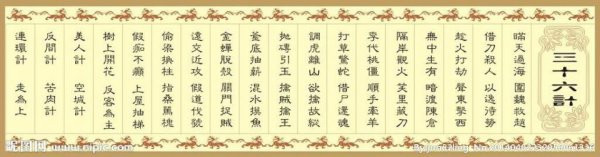 三十六計
瞞天過海 圍魏救趙
借刀殺人 以逸待勞
趁火打劫 聲東擊西
無中生有 暗渡陳倉
隔岸觀火 笑里藏刀
李代桃僵 順手牽羊
打草驚蛇 借尸還魂
調虎離山 欲擒故縱
拋磚引玉 擒賊擒王
釜底抽薪 混水摸魚
金蟬脫殼 關門捉賊
遠交近攻 假道伐虢
偷梁換柱 指桑罵槐
假痴不癲 上屋抽梯
樹上開花 反客為主
美人計 空城計
反間計 苦肉計
連環計 走為上
昵图网 www.nipic.com